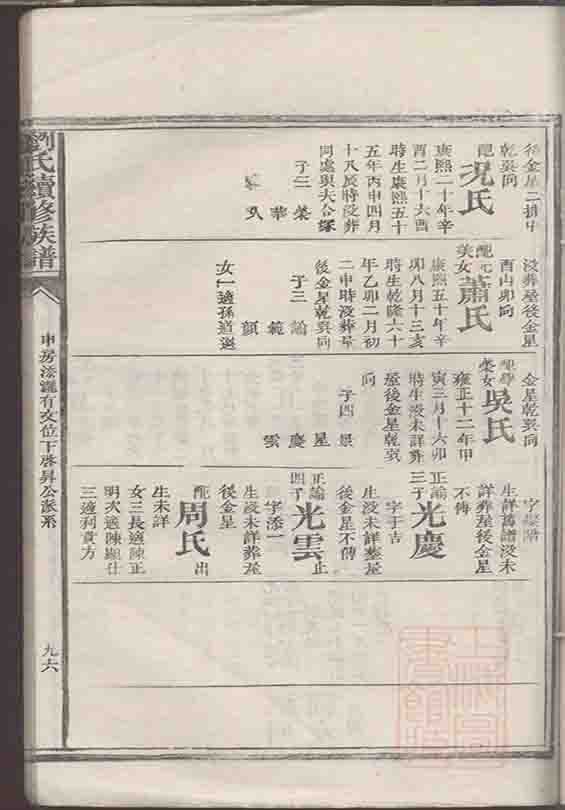 後金星二排甲
乾巽向
配況氏
康熙二十年辛
酉二月十六酉
時生康熙五十
五年丙申四月
十八辰時沒葬
同處與夫合塚
子三 榮
華
沒葬屋後金星
酉山卯向
配元美女蕭氏
康熙五十年辛
卯八月十三亥
時生乾隆六十
年乙卯二月初
二申時沒葬屋
後金星乾巽向
子三 諭
範
顏
女一適孫道遠
金星乾巽向
吳氏
雍正十二年甲
寅三月十六卯
時生沒未詳葬
屋後金星乾巽
向
子四 景
星
慶
雲
生詳舊譜沒未
詳葬屋後金星
不傳
正諭三子光慶
字于吉
生沒未詳葬屋
後金星不傳
正諭四子光雲止
字添一
生沒未詳葬屋
後金星
配周氏出
生未詳
女三長適陳正
明次適陳顯仕
三適列貴方
劉氏續修族譜
申房添灑有交位下啓昇公派系
九六